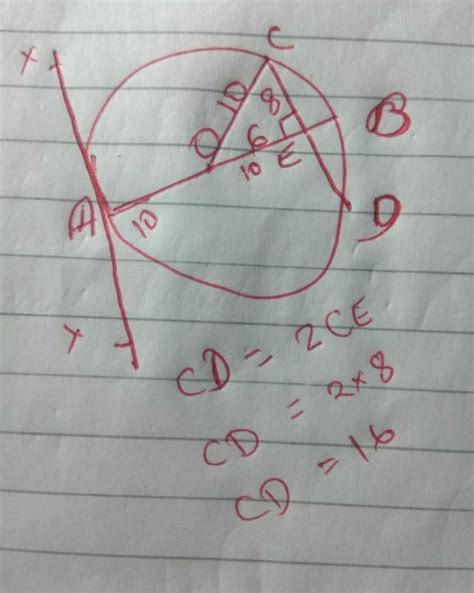 X
C
10
8
O
6
B
10
E
A
10
D
Y
CD = 2CE
CD = 2×8
CD = 16